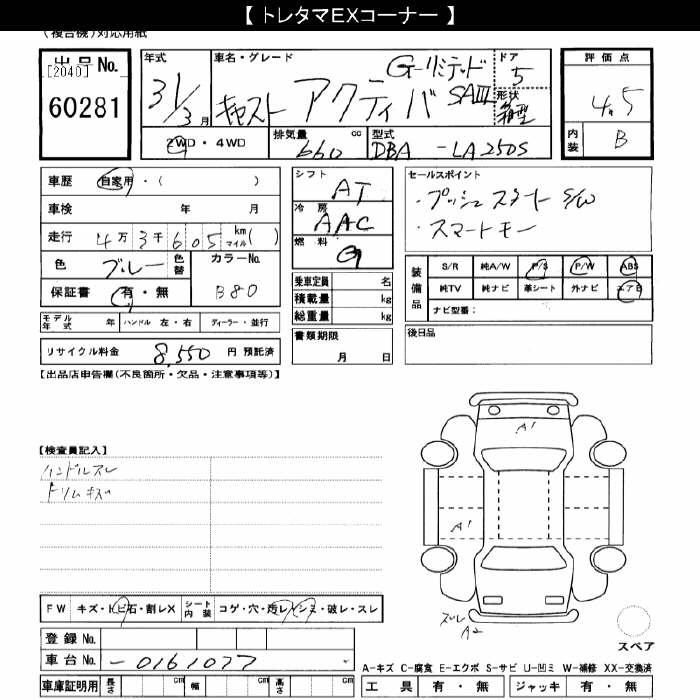 【 トレタマEXコーナー 】
(複合機)対応用紙
出品No.
[2040]
60281
年式
31/3 月
車名・グレード
キャスト アクティバ G-リミテッド SAⅢ
ドア
5
形状
箱型
評価点
4.5
内装
B
2WD・4WD
排気量 cc
660
型式
DBA -LA250S
車歴 自家用・( )
車検 年 月
走行 4万3千605 km マイル( )
色 ブルー 色替
カラーNo.
B80
保証書 有・無
シフト
AT
冷房
AAC
燃料
G
セールスポイント
・プッシュスタート S/W
・スマートキー
装備品
S/R 純A/W P/S P/W ABS
純TV 純ナビ 革シート 外ナビ エアB
ナビ型番:
乗車定員 名
積載量 kg
総重量 kg
モデル年式 年 ハンドル 左・右 ディーラー・並行
書類期限
月 日
後日品
リサイクル料金 8,550 円 預託済
【出品店申告欄(不良箇所・欠品・注意事項等)】
【検査員記入】
ハンドルスレ
トリムキズ
A1
A1
スレ
A2
スペア
FW キズ・トビ石・割レX
シート内装 コゲ・穴・汚レ・シミ・破レ・スレ
登録No.
車台No. -0161077
A-キズ C-腐食 E-エクボ S-サビ U-凹ミ W-補修 XX-交換済
車庫証明用 長さ cm 幅 cm 高さ cm
工具 有・無 ジャッキ 有・無